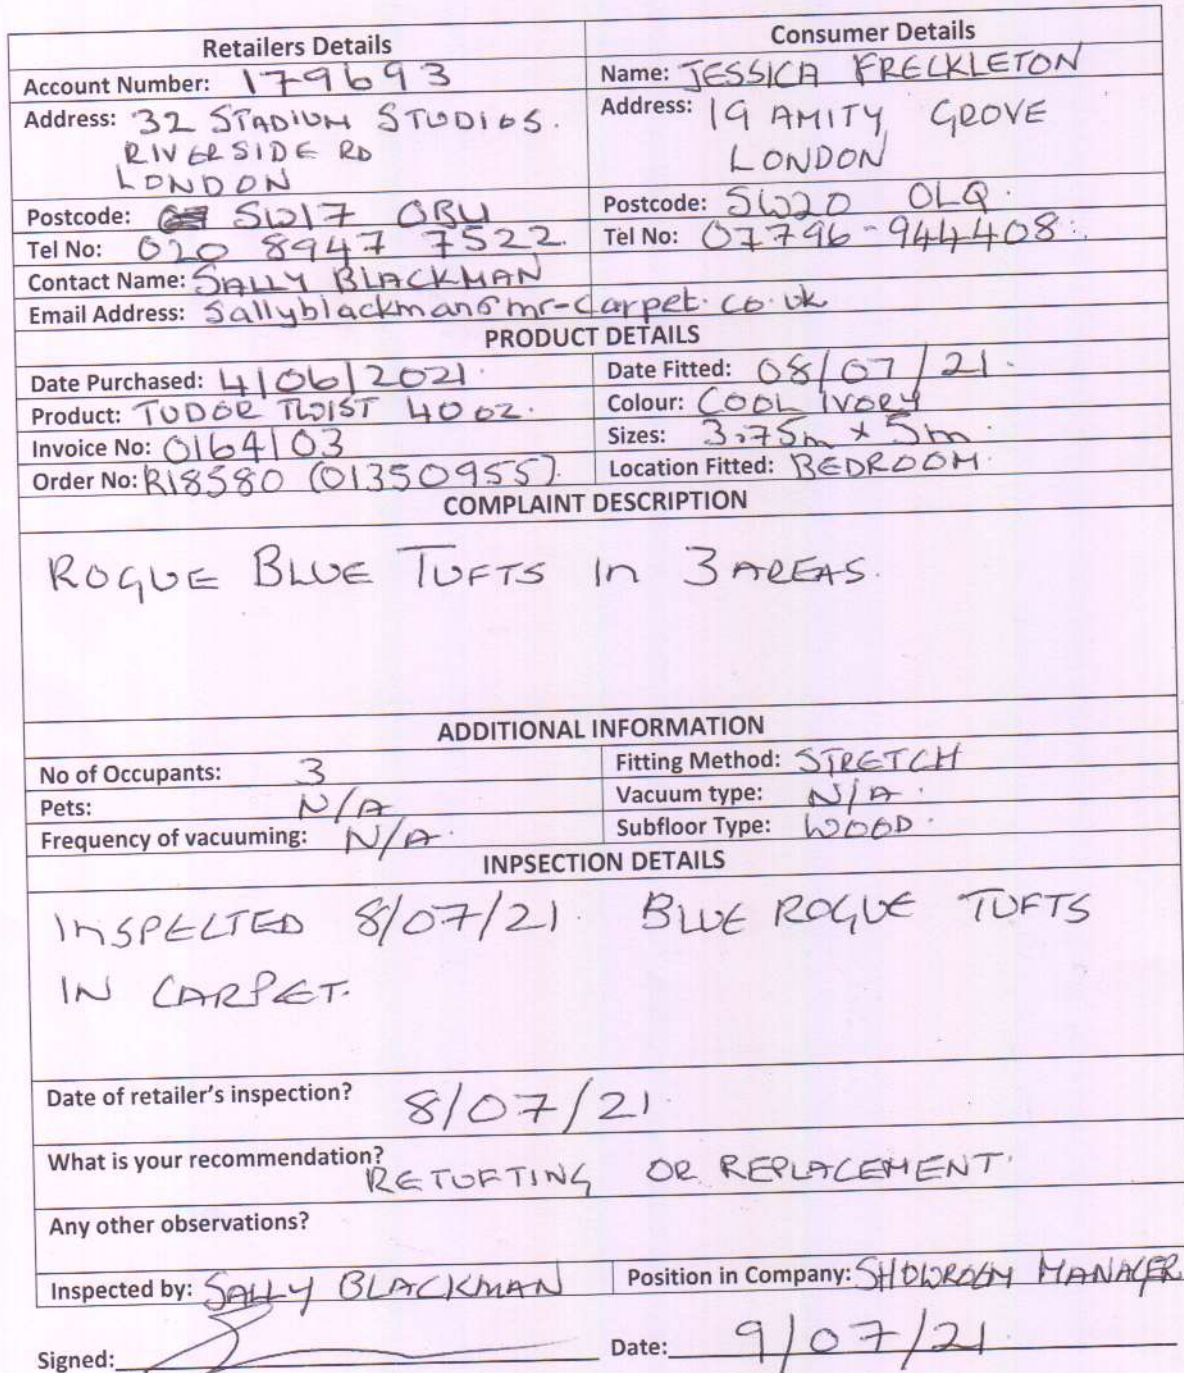 Retailers Details
Consumer Details
Account Number: 179693
Name: JESSICA FRECKLETON
Address: 32 STADIUM STUDIOS.
RIVERSIDE RD
LONDON
Address: 19 AMITY GROVE
LONDON
Postcode: SW17 0RU
Postcode: SW20 0LQ.
Tel No: 020 8947 7522.
Tel No: 07796-944408.
Contact Name: SALLY BLACKMAN
Email Address: Sallyblackman@mr-carpet.co.uk
PRODUCT DETAILS
Date Purchased: 4/06/2021.
Date Fitted: 08/07/21.
Product: TUDOR TWIST 40oz.
Colour: COOL IVORY
Invoice No: 0164103
Sizes: 3.75m x 5m.
Order No: R18580 (01350955).
Location Fitted: BEDROOM.
COMPLAINT DESCRIPTION
ROGUE BLUE TUFTS In 3 AREAS.
ADDITIONAL INFORMATION
No of Occupants: 3
Fitting Method: STRETCH
Pets: N/A
Vacuum type: N/A.
Frequency of vacuuming: N/A.
Subfloor Type: WOOD.
INPSECTION DETAILS
INSPECTED 8/07/21. BLUE ROGUE TUFTS
IN CARPET.
Date of retailer's inspection? 8/07/21.
What is your recommendation? RETUFTING OR REPLACEMENT.
Any other observations?
Inspected by: SALLY BLACKMAN
Position in Company: SHOWROOM MANAGER
Signed:
Date: 9/07/21.